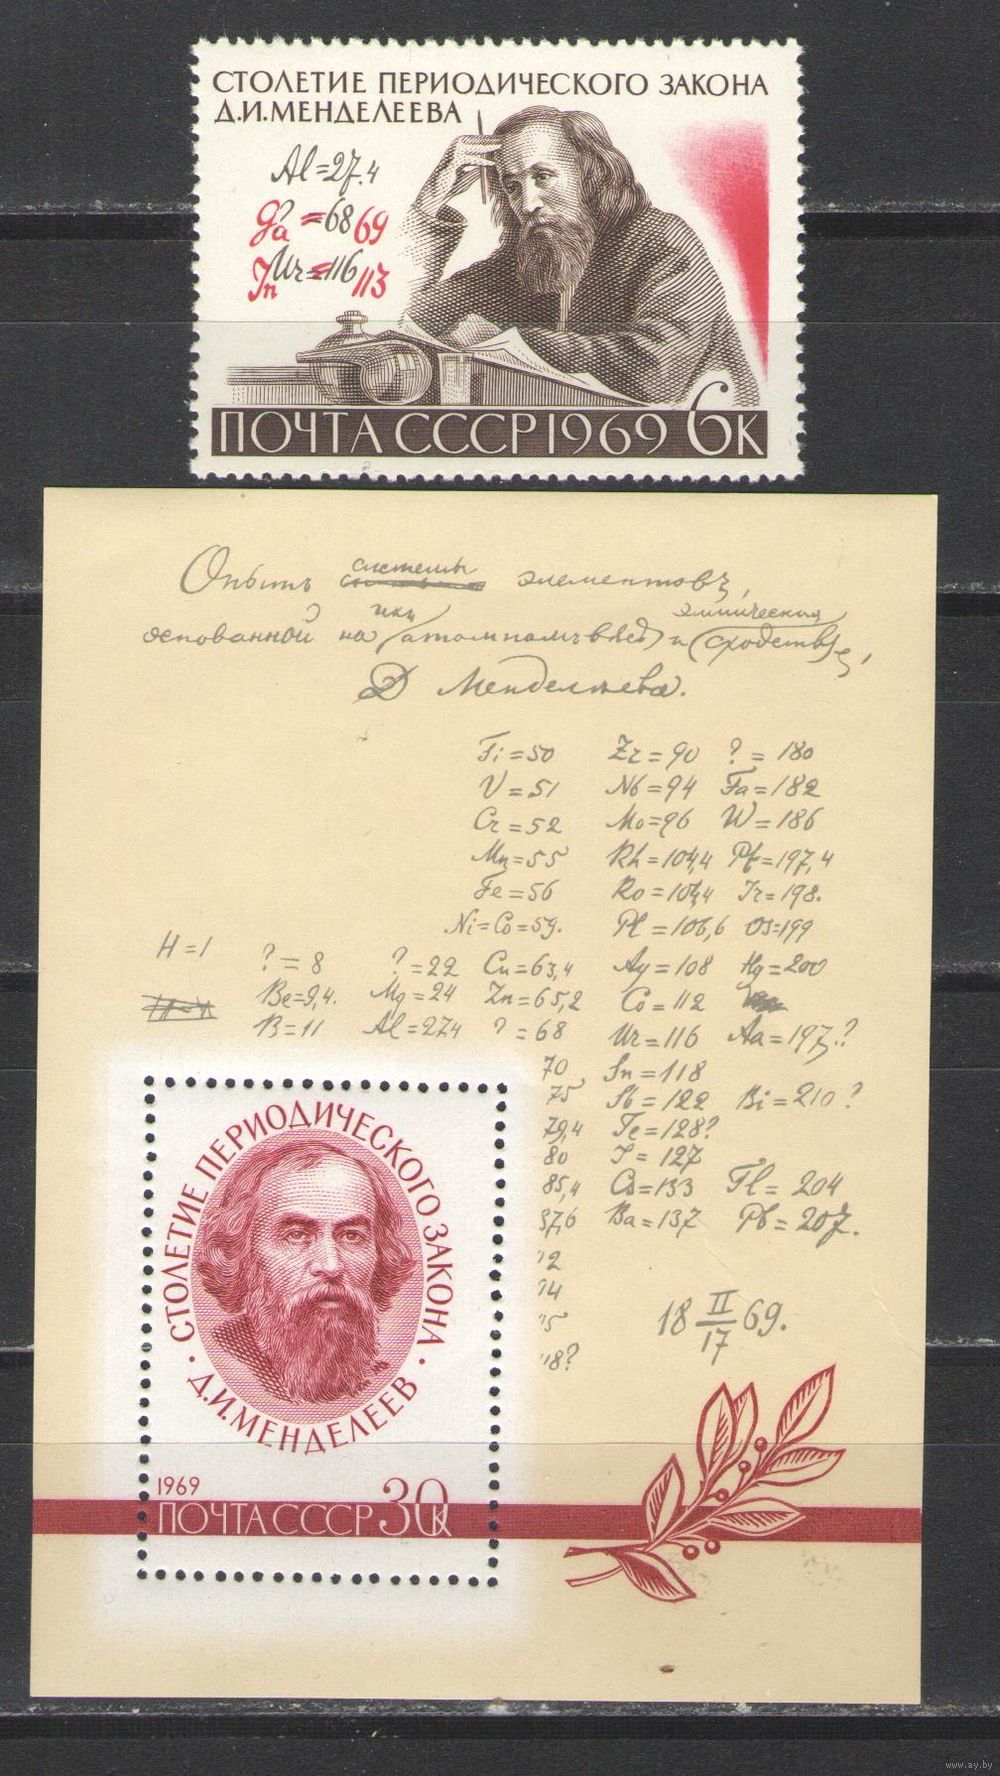 СТОЛЕТИЕ ПЕРИОДИЧЕСКОГО ЗАКОНА
Д.И.МЕНДЕЛЕЕВА
Al=27.4
Ga ? =68 69
In Ur=116 113
ПОЧТА СССР 1969 6К
Опытъ системы элементовъ,
основанной на атомномъ и химическия
Д Менделѣева.
Ti=50 Zr=90 ?=180
V=51 Nb=94 Ta=182
Cr=52 Mo=96 W=186
Mn=55 Rh=104,4 Pt=197,4
Fe=56 Ro=104,4 Ir=198.
Ni=Co=59. Pl=106,6 Os=199
H=1 ?=8 ?=22 Cu=63,4 Ag=108 Hg=200
Be=9,4. Mg=24 Zn=65,2 Cd=112
B=11 Al=27,4 ?=68 Ur=116 Au=197?
70 Sn=118
75 Sb=122 Bi=210?
79,4 Te=128?
80 I=127
85,4 Cs=133 Tl=204
37,6 Ba=137 Pb=207.
18 II/17 69.
18?
СТОЛЕТИЕ ПЕРИОДИЧЕСКОГО ЗАКОНА
· Д.И.МЕНДЕЛЕЕВ ·
1969
ПОЧТА СССР 30К
www.ay.by